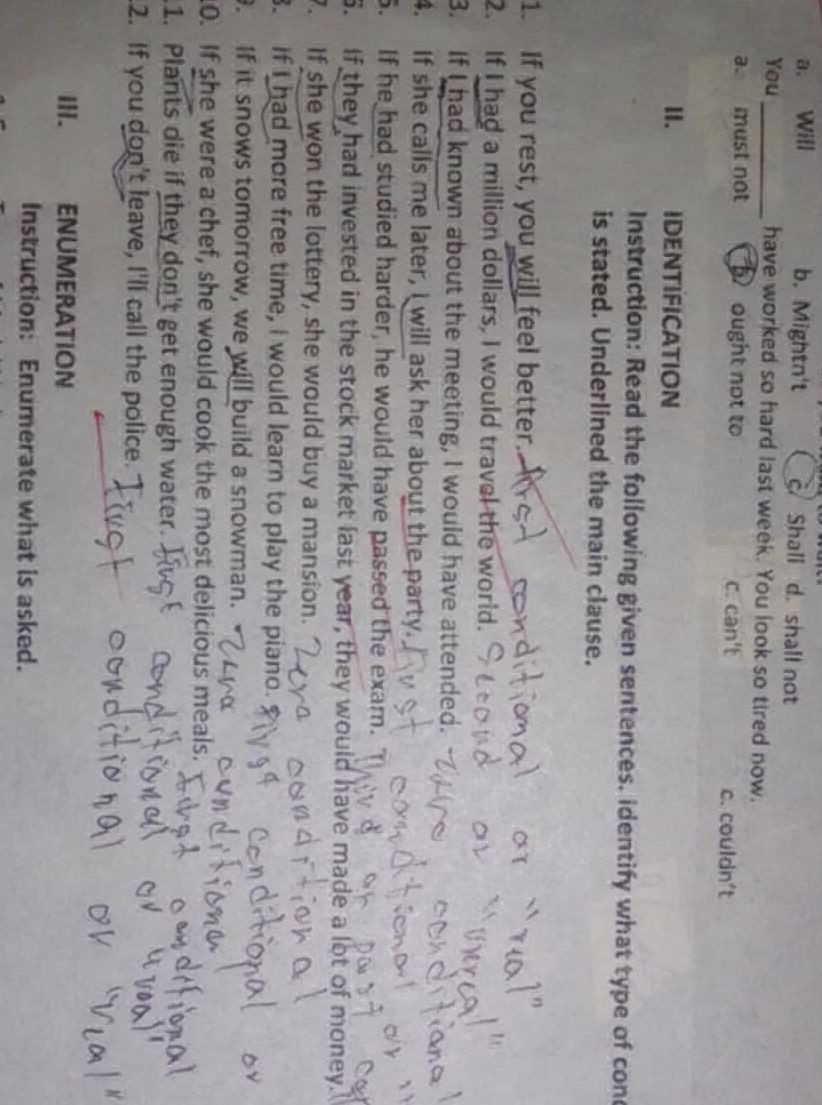 a. Will b. Mightn't c. Shall d. shall not
You ________ have worked so hard last week. You look so tired now.
a. must not b. ought not to c. can't c. couldn't
II. IDENTIFICATION
Instruction: Read the following given sentences. Identify what type of
is stated. Underlined the main clause.
1. If you rest, you will feel better. first conditional or "real"
2. If I had a million dollars, I would travel the world. Second or "unreal"
3. If I had known about the meeting, I would have attended. zero conditional
4. If she calls me later, I will ask her about the party. first conditional or
5. If he had studied harder, he would have passed the exam. Third or past
6. If they had invested in the stock market last year, they would have made a lot of money.
7. If she won the lottery, she would buy a mansion. Zero conditional
8. If I had more free time, I would learn to play the piano. first conditional or
9. If it snows tomorrow, we will build a snowman. zero conditional
10. If she were a chef, she would cook the most delicious meals. first conditional
11. Plants die if they don't get enough water. first conditional or
12. If you don't leave, I'll call the police. first conditional or "real"
III. ENUMERATION
Instruction: Enumerate what is asked.